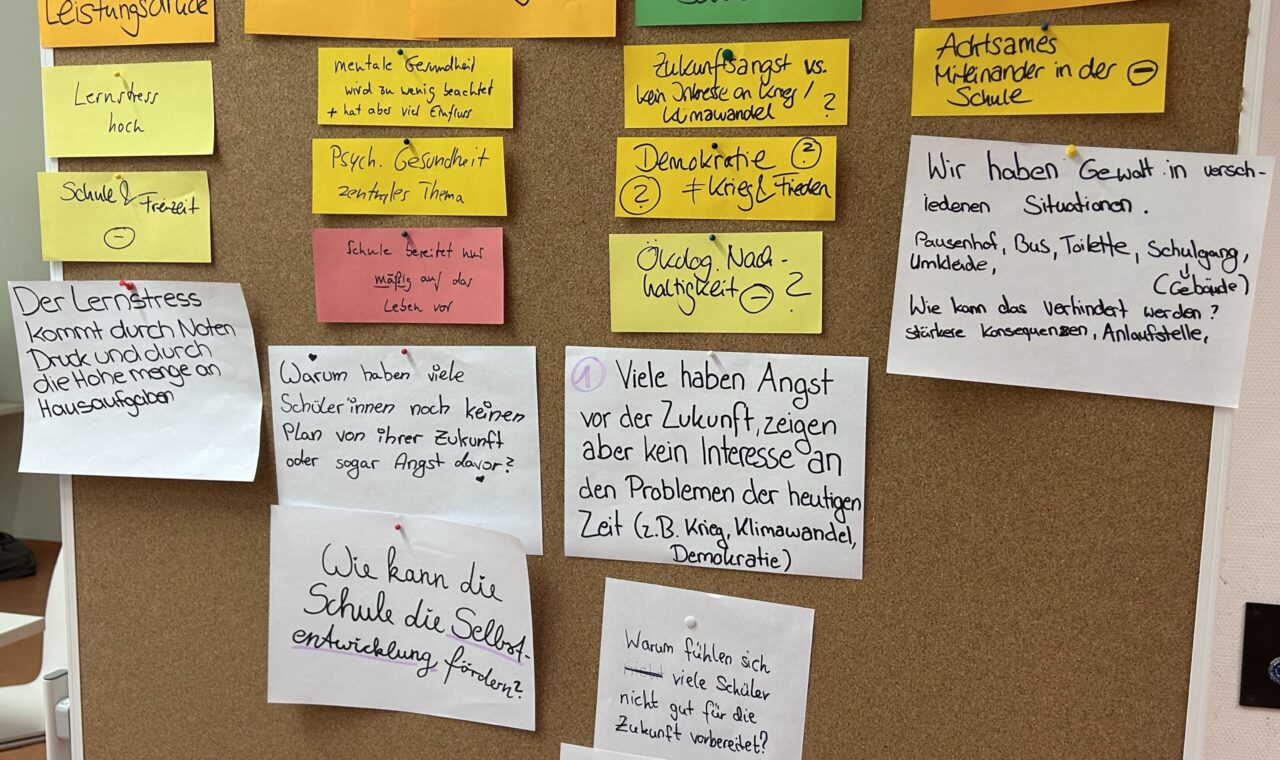 Leistungsdruck
Lernstress
hoch
Schule & Freizeit
-
Der Lernstress
kommt durch Noten
Druck und durch
die Hohe menge an
Hausaufgaben
mentale Gesundheit
wird zu wenig beachtet
+ hat aber viel Einfluss
Psych. Gesundheit
zentrales Thema
Schule bereitet nur
mäßig auf das
Leben vor
Warum haben viele
Schüler*innen noch keinen
Plan von ihrer Zukunft
oder sogar Angst davor?
Wie kann die
Schule die Selbst-
entwicklung fördern?
Zukunftsangst vs.
kein Interesse an Krieg /
Klimawandel ?
Demokratie ?
? ≠ Krieg & Frieden
Ökolog. Nach-
haltigkeit - ?
1 Viele haben Angst
vor der Zukunft, zeigen
aber kein Interesse an
den Problemen der heutigen
Zeit (z.B. Krieg, Klimawandel,
Demokratie)
Warum fühlen sich
viele Schüler
nicht gut für die
Zukunft vorbereitet?
Achtsames
Miteinander in der -
Schule
Wir haben Gewalt in versch-
iedenen Situationen.
Pausenhof, Bus, Toilette, Schulgang,
Umkleide, (Gebäude)
Wie kann das verhindert werden?
stärkere Konsequenzen, Anlaufstelle,